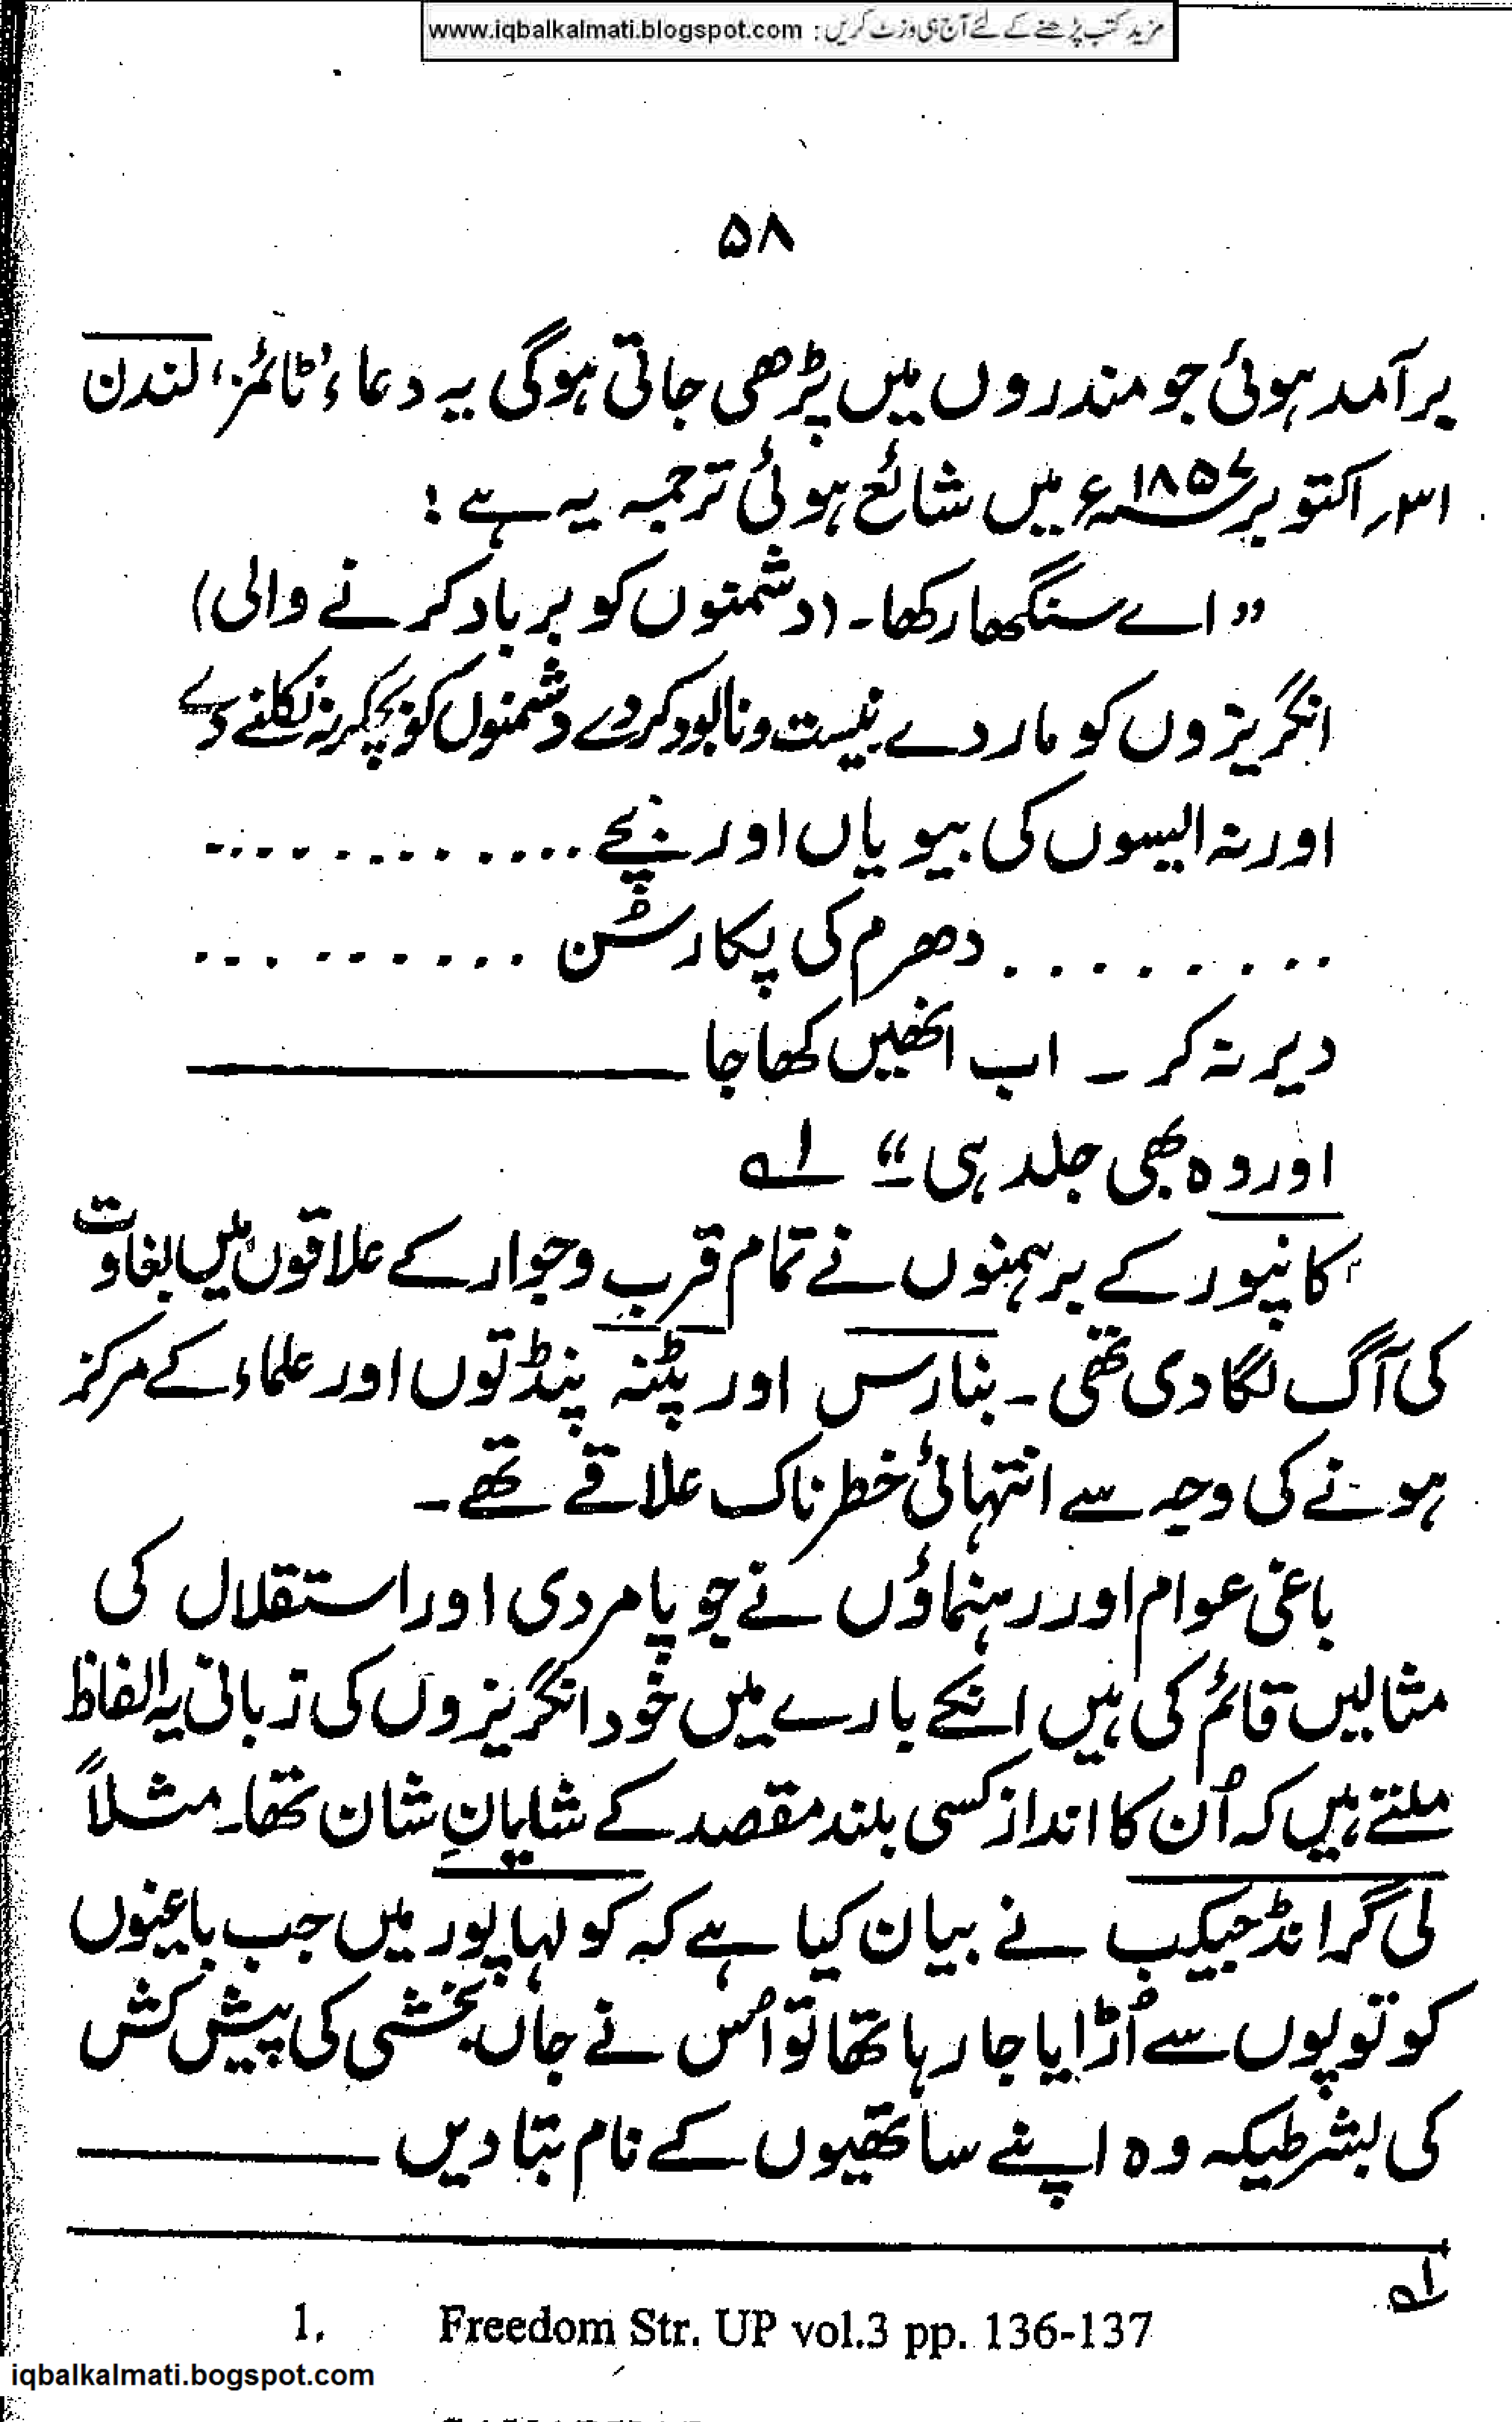 مزید کتب پڑھنے کے لئے آج ہی وزٹ کریں : www.iqbalkalmati.blogspot.com
۵۸
برآمد ہوئی جو مندروں میں پڑھی جاتی ہوگی یہ دعاء ’ٹائمز‘ لندن
۳۱ر اکتوبر ۱۸۵۷ء میں شائع ہوئی ترجمہ یہ ہے :
” اے سنگھا رکھا۔ (دشمنوں کو برباد کرنے والی)
انگریزوں کو مار دے نیست و نابود کردے دشمنوں کو بچکر نہ نکلنے دے
اور نہ ایسوں کی بیویاں اور بچے ..............
......... دھرم کی پکار سُن ..........
دیر نہ کر ۔ اب انھیں کھا جا ــــــــــــــــ
اور وہ بھی جلد ہی “ ۱ے
کانپور کے برہمنوں نے تمام قرب وجوار کے علاقوں میں بغاوت
کی آگ لگا دی تھی ۔ بنارس اور پٹنہ پنڈتوں اور علماء کے مرکز
ہونے کی وجہ سے انتہائی خطرناک علاقے تھے ۔
باغی عوام اور رہنماؤں نے جو پامردی اور استقلال کی
مثالیں قائم کی ہیں انکے بارے میں خود انگریزوں کی زبانی یہ الفاظ
ملتے ہیں کہ اُن کا انداز کسی بلند مقصد کے شایانِ شان تھا۔ مثلاً
لی گرانڈ جیکب نے بیان کیا ہے کہ کولہاپور میں جب باغیوں
کو توپوں سے اُڑایا جا رہا تھا تو اُس نے جاں بخشی کی پیش کش
کی بشرطیکہ وہ اپنے ساتھیوں کے نام بتا دیں ــــــــــــــــ
۱ے
1. Freedom Str. UP vol.3 pp. 136-137
iqbalkalmati.bogspot.com